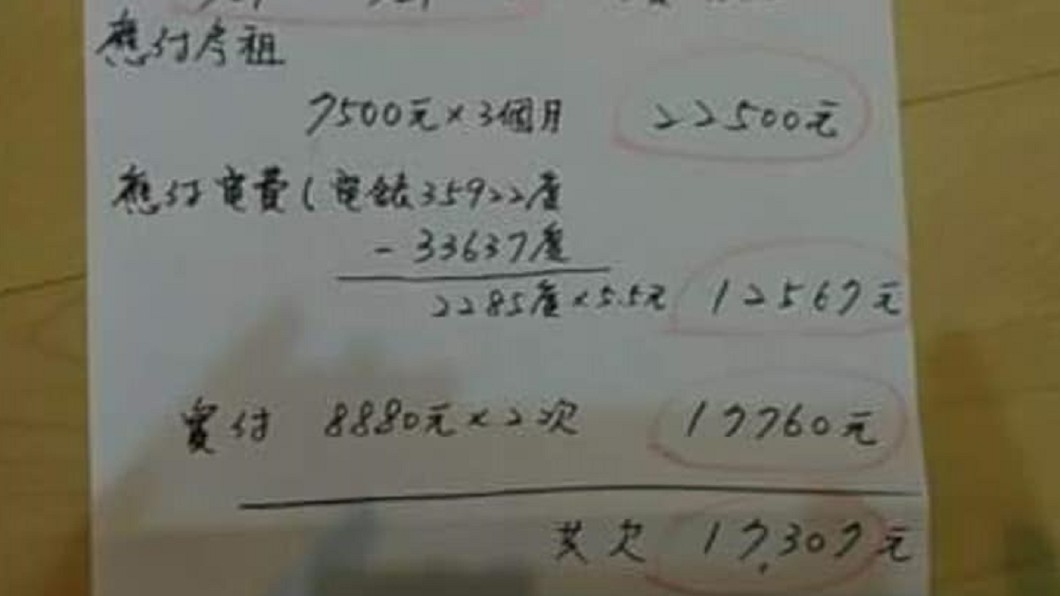 應付房租
7500元×3個月 22500元
應付電費(電錶35922度
-33637度
2285度×5.5元 12567元
實付 8880元×2次 17760元
共欠 17,307元